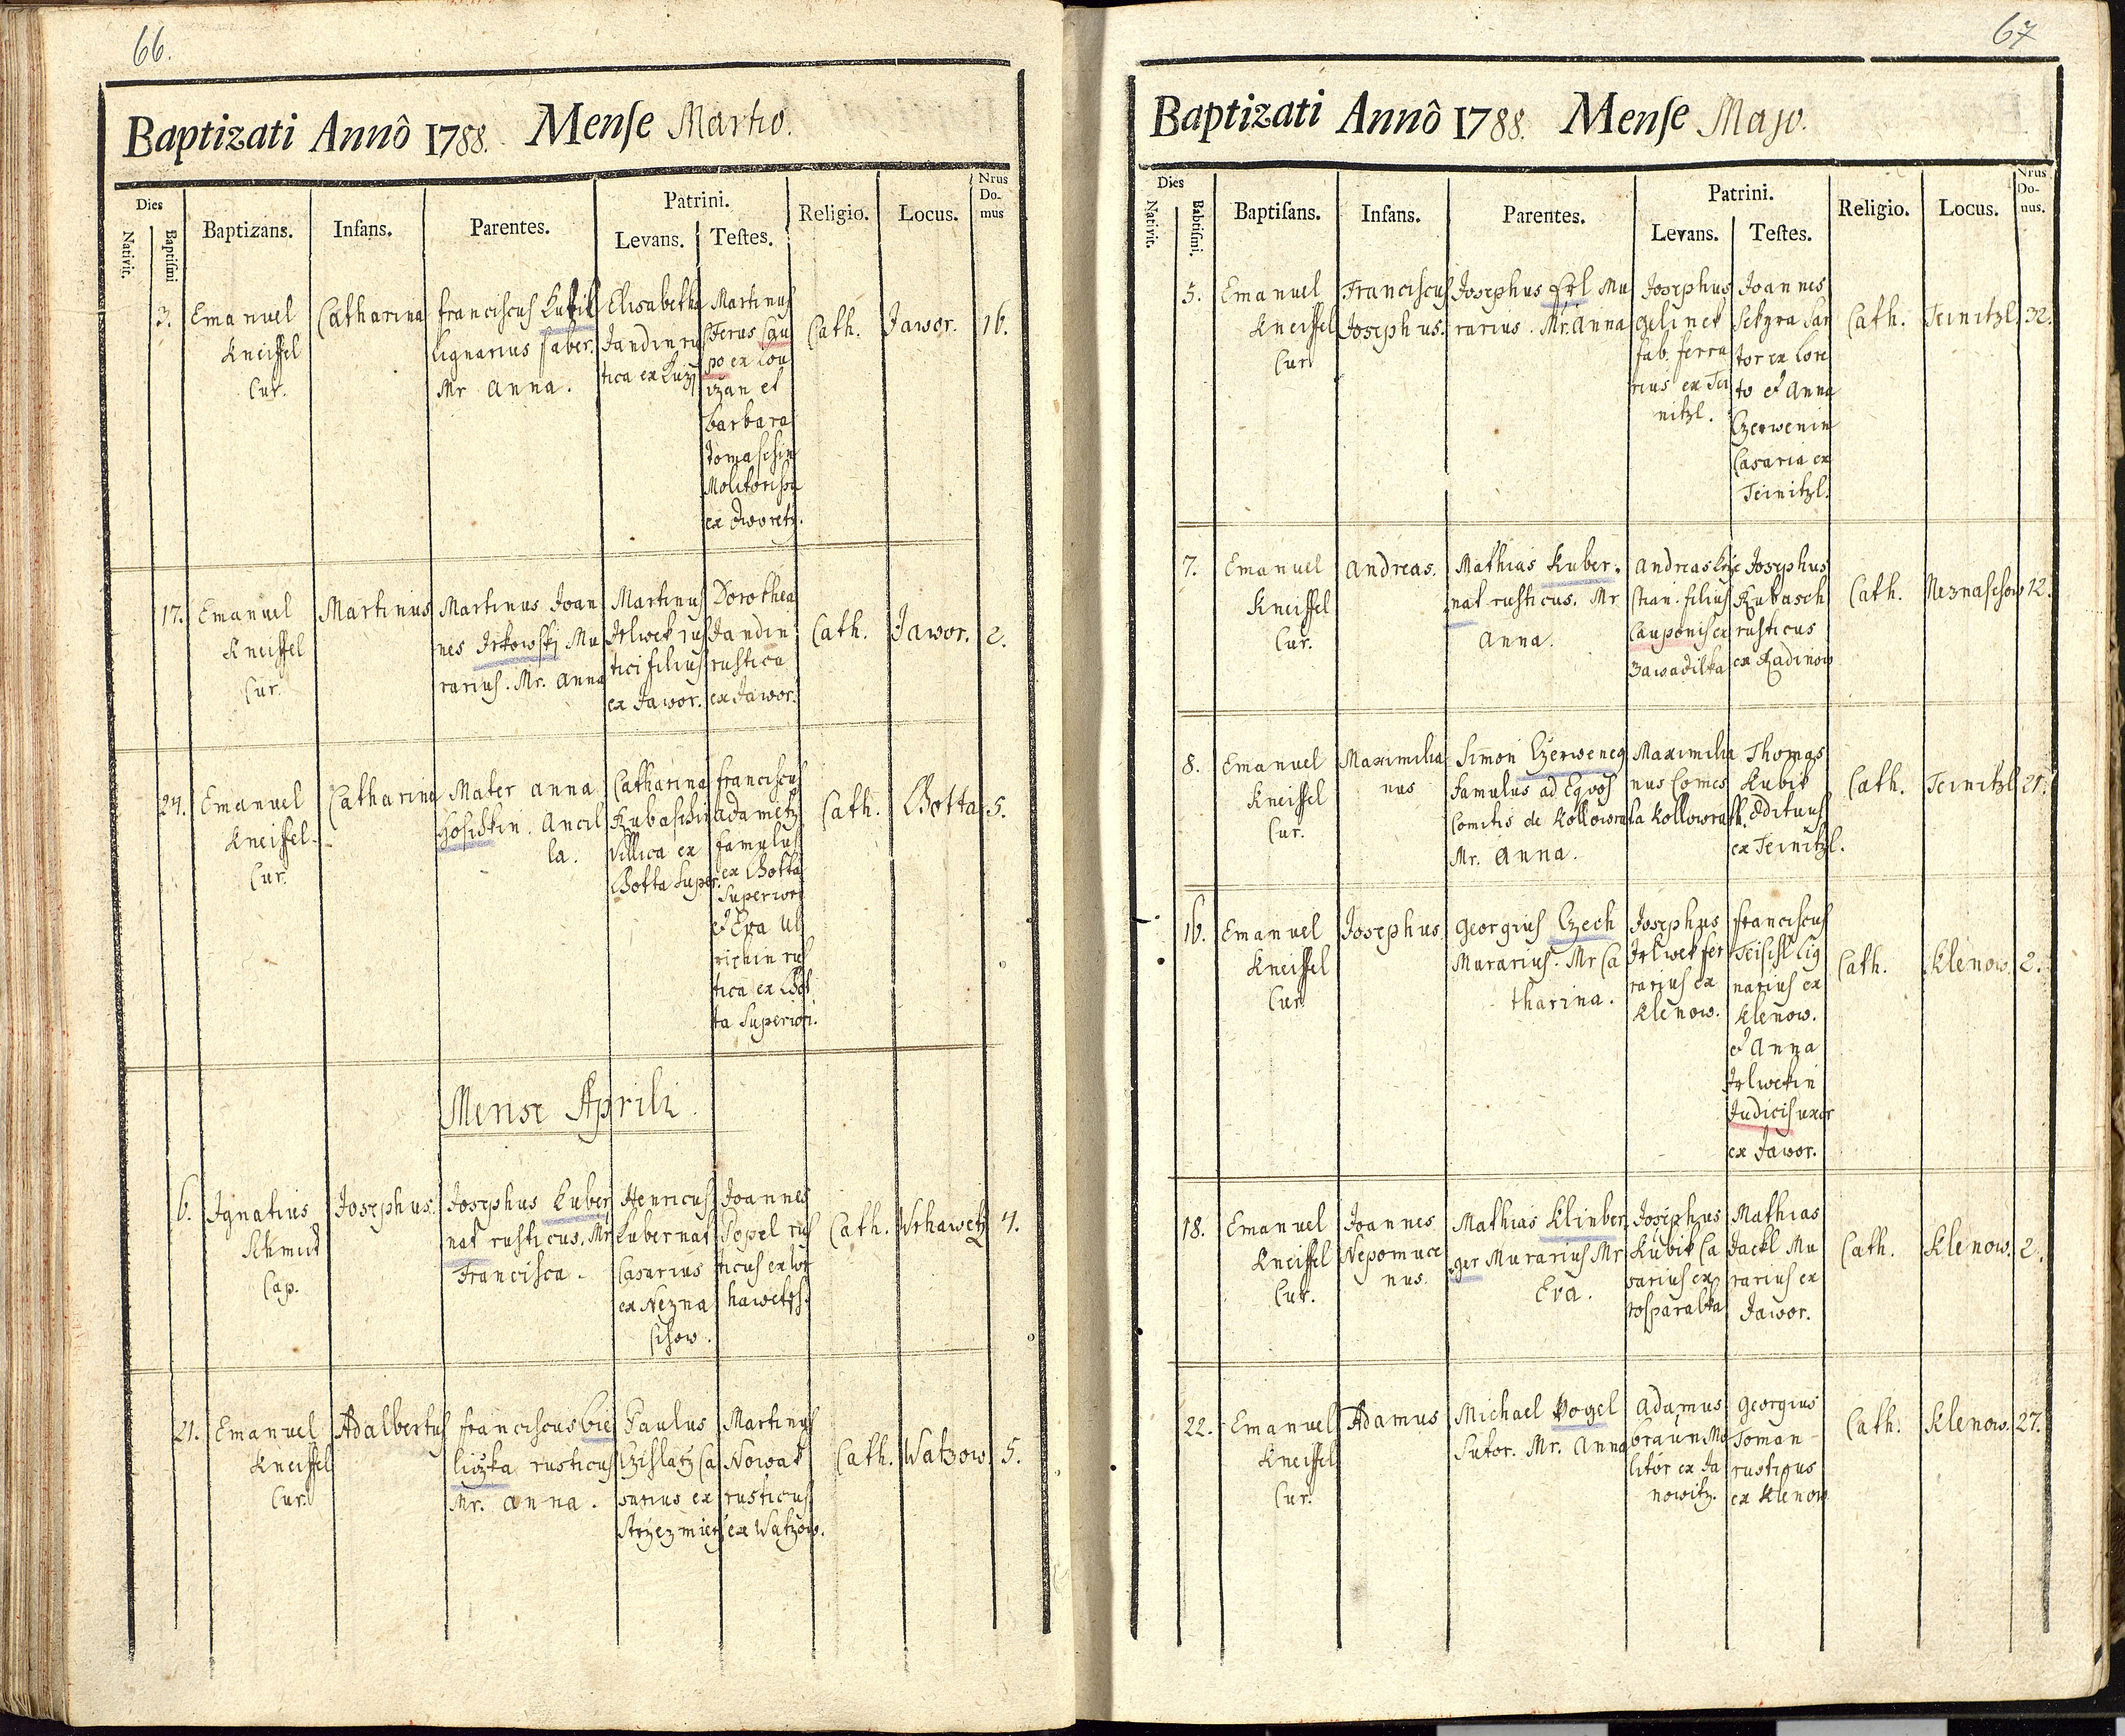 66.
Baptizati Annô 1788. Mense Martio.
Dies
Nativit.
Baptismi
Baptizans.
Infans.
Parentes.
Patrini.
Levans.
Testes.
Religio.
Locus.
Nrus
Do-
mus
3.
Emanuel
Kneissel
Cur.
Catharina
Franciscus
Lignarius faber.
Mr Anna.
Elisabetha
Jandin rus
tica ex
Martinus
Cau
po ex Lou
izan et
barbara
Tomaschin
Molitorissa
ex Dworetz.
Cath.
Jawor.
16.
17.
Emanuel
Kneissel
Cur.
Martinus
Martinus Joan
nes Irkowskj Mu
rarius. Mr. Anna
Martinus
Irlwek rus
tici filius
ex Jawor.
Dorothea
Jandin
rustica
ex Jawor.
Cath.
Jawor.
2.
24.
Emanuel
Kneissel.
Cur.
Catharina
Mater Anna
Hoschkin. Ancil
la.
Catharina
Kubaschin
Villica ex
Lhotta Super.
Franciscus
Adametz
famulus
ex Lhotta
Superiori
et Eva Ul
richin rus
tica ex Lhot
ta Superiori.
Cath.
Lhotta
5.
Mense Aprili.
6.
Ignatius
Schmid
Cap.
Josephus.
Josephus Kuber
nat rusticus. Mr
Francisca.
Henricus
Kubernat
Casarius
ex Nezna
schow.
Joannes
Popel rus
ticus ex Wr
hawetz.
Cath.
Wrhawetz
4.
21.
Emanuel
Kneissel
Cur.
Adalbertus
Franciscus bie
liczka rusticus
Mr. Anna.
Paulus
Czislatz Ca
sarius ex
Strzezmierz
Martinus
Nowak
rusticus
ex Watzow.
Cath.
Watzow
5.
67
Baptizati Annô 1788. Mense Majo.
Dies
Nativit.
Babtismi.
Baptisans.
Infans.
Parentes.
Patrini.
Levans.
Testes.
Religio.
Locus.
Nrus
Do-
nus.
5.
Emanuel
Kneissel
Cur.
Franciscus
Josephus.
Josephus Erl Mu
rarius. Mr. Anna
Josephus
Gelinek
fab. ferra
rius ex Tei
nitzl.
Joannes
Sekyra Sar
tor ex Lore
to et Anna
Czerwenin
Casaria ex
Teinitzl.
Cath.
Teinitzl.
32.
7.
Emanuel
Kneissel
Cur.
Andreas.
Mathias Kuber.
nat rusticus. Mr
Anna.
Andreas
stian. filius
Cauponis ex
Zawadilka
Josephus
Kubasch
rusticus
ex Radinow
Cath.
Neznaschow
12.
8.
Emanuel
Kneissel
Cur.
Maximilia
nus
Simon Czerweneg
Famulus ad Equos
Comitis de Kollowra
Mr. Anna.
Maximilia
nus Comes
a Kollowrath.
Thomas
Kubik
Ædituus
ex Teinitzl.
Cath.
Teinitzl
21.
16.
Emanuel
Kneissel
Cur.
Josephus.
Georgius Czech
Murarius. Mr Ca
tharina.
Josephus
Irlwek fer
rarius ex
Klenow.
Franciscus
Teischl Lig
narius ex
Klenow.
et Anna
Irlwekin
Judicis uxor
ex Jawor.
Cath.
Klenow.
2.
18.
Emanuel
Kneissel
Cur.
Joannes
Nepomuce
nus.
Mathias Klinber
ger Murarius Mr
Eva.
Josephus
Kubik Ca
sarius ex
rosparalka
Mathias
Jackl Mu
rarius ex
Jawor.
Cath.
Klenow.
2.
22.
Emanuel
Kneissel
Cur.
Adamus
Michael Vogel
Sutor. Mr. Anna
Adamus
braun Mo
litor ex Ja
nowitz.
Georgius
Toman
rusticus
ex Klenow
Cath.
Klenow.
27.